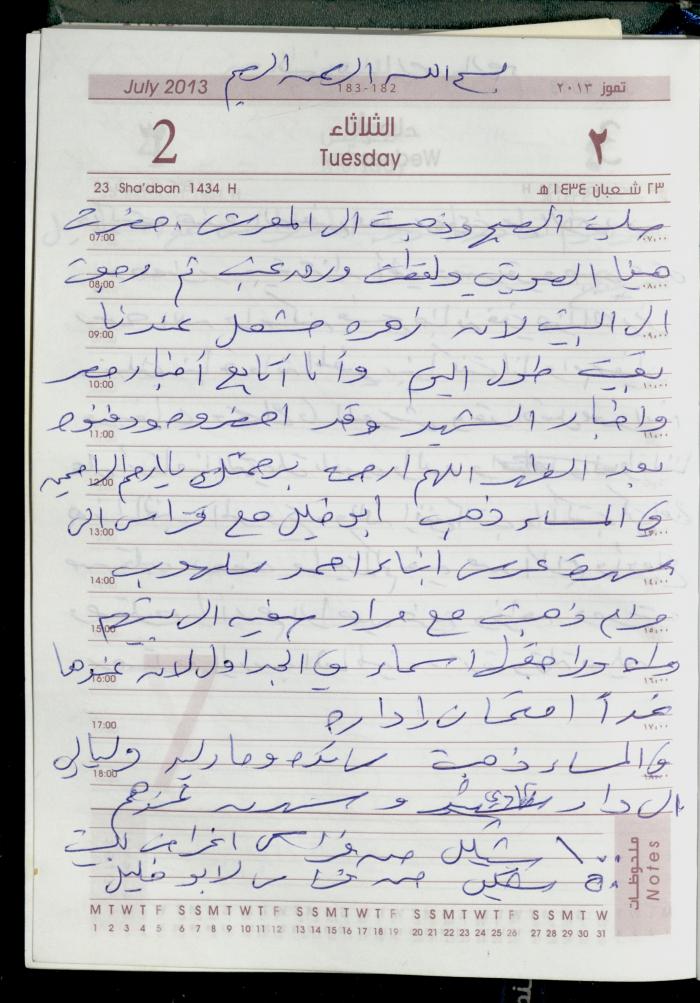 بسم الله الرحمن الرحيم
July 2013 183-182 تموز ٢٠١٣
2 الثلاثاء ٢
Tuesday
23 Sha'aban 1434 H ٢٣ شعبان ١٤٣٤ هـ
صليت الصبح وذهبت الى المعرش حضرت
07:00 ٠٧:٠٠
هيفا الصويتي ولقطت ورق عنب ثم رجعت
08:00 ٠٨:٠٠
الى البيت لانه زهره حتضل عندنا
09:00 ٠٩:٠٠
بقيت طول اليوم وأنا أتابع أخبار مصر
10:00 ١٠:٠٠
واخبار الشهيد وقد احضروه ودفنوه
11:00
بعد الظهر اللهم ارحمه برحمتك يا ارحم الراحمين
12:00
في المساء ذهب ابو خليل مع فراس الى
13:00
سهرة عرس ابناء احمد سلهوب
14:00 ١٤:٠٠
مرام ذهبت مع مراد سفيه الى بيتهم
15:00
اسماء في الجداول لانه عندها
16:00 ١٦:٠٠
غداً امتحان إداره
17:00 ١٧:٠٠
في المساء ذهبت وماراير وليالي
18:00 ١٨:٠٠
الى دار وسهرت عندهم
١٠٠ شيكل من فراس اغراض للبيت
٥٠ شيكل من لابو خليل
ملحوظات Notes
M T W T F S S M T W T F S S M T W T F S S M T W T F S S M T W
1 2 3 4 5 6 7 8 9 10 11 12 13 14 15 16 17 18 19 20 21 22 23 24 25 26 27 28 29 30 31